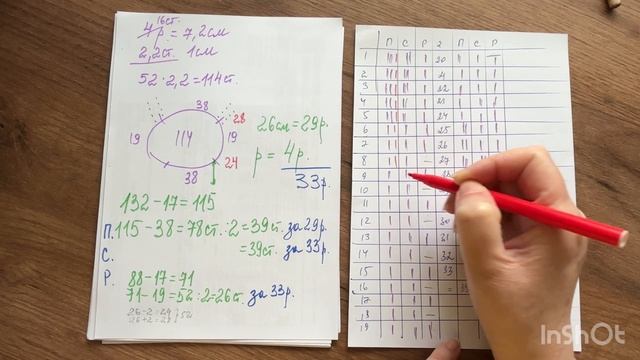 16ст.
4р = 7,2см
2,2ст. 1см
52 · 2,2 = 114ст.
38
28
19
114
19
24
38
26см = 29р.
р = 4р.
33р.
132 - 17 = 115
П. 115 - 38 = 78ст. : 2 = 39ст. за 29р.
С. = 39ст. за 33р.
Р. 88 - 17 = 71
71 - 19 = 52 : 2 = 26ст. за 33р.
26 - 2 = 24
26 + 2 = 28
} 52
П С Р 2 П С Р
1 20
2 21
3 22
4 23
5 24
6 25
7 26
8 27
9
10
11
12 30
13 31
14 32
15 33
16
17
18
19
InShOt